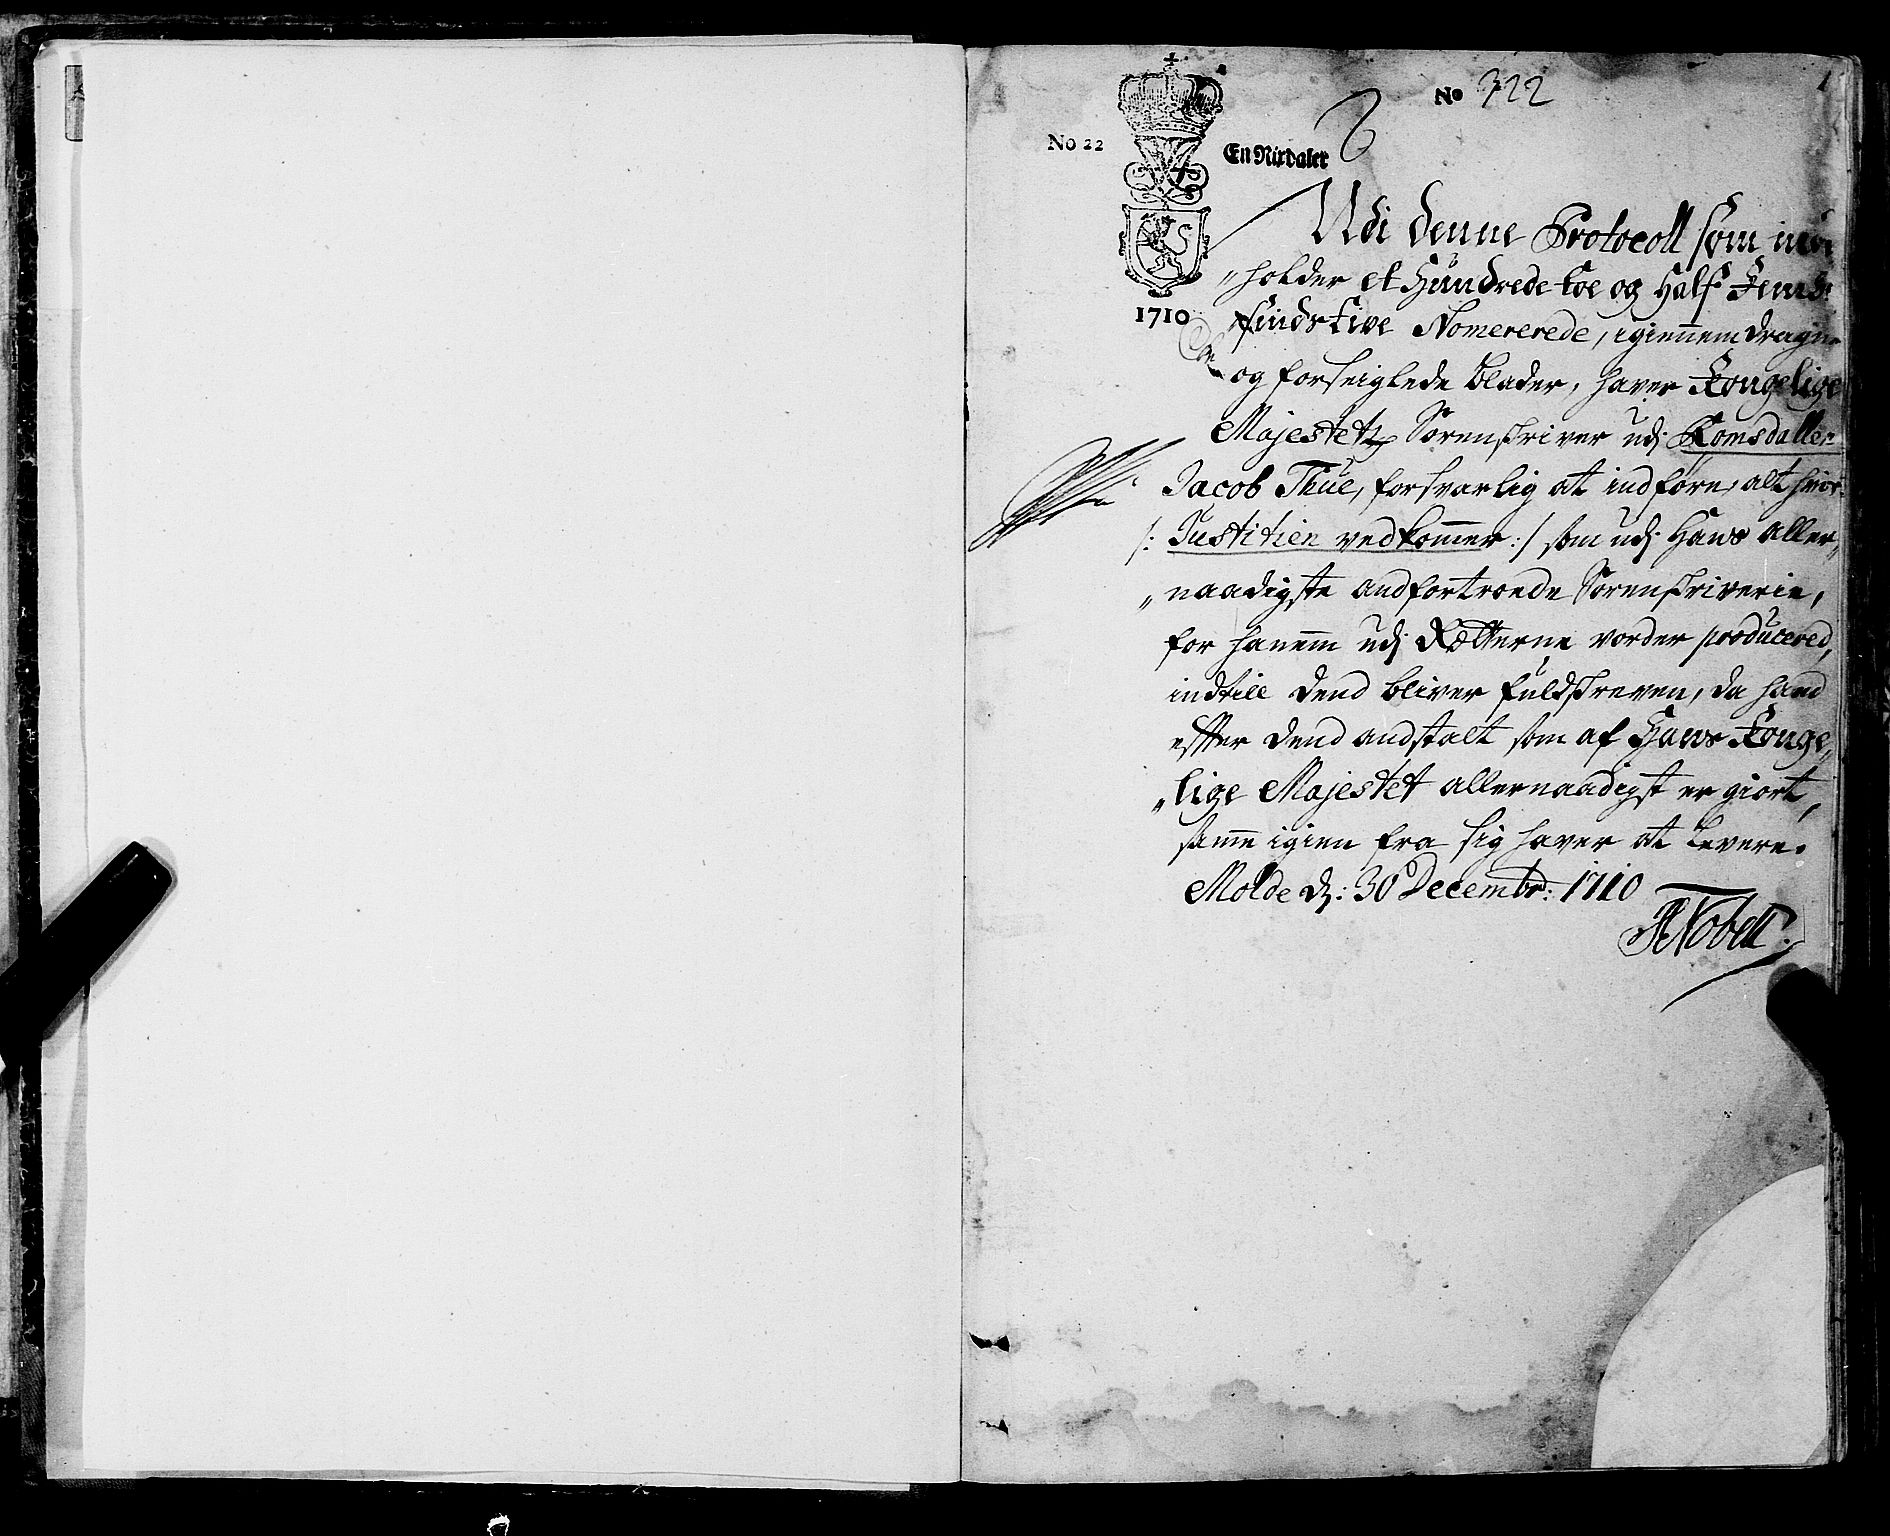 No 322
1
No 22
En Rixdaler
1710
Udi denne Protocoll som inde
„holder et Hundrede toe og Half Femde
sindstive Nomererede, igiennemdragne
og forseiglede blader, haver Kongelige
Majestetz Sorenskriver udj Romsdallen
Jacob Thue, forsvarlig at indføre, alt hvis
/: Justitien vedkom̅er :/ som udj Hans aller„
„naadigste andfortroede Sorenskriverie,
for hanem udj Rætterne vorder producered,
indtill dend bliver fuldskreven, da hand
effter dend andstalt som af Hans Konge„
„lige Majestet allernaadigst er giort,
sam̅e igien fra sig haver at levere.
Molde d: 30 Decembr: 1710
Nobell